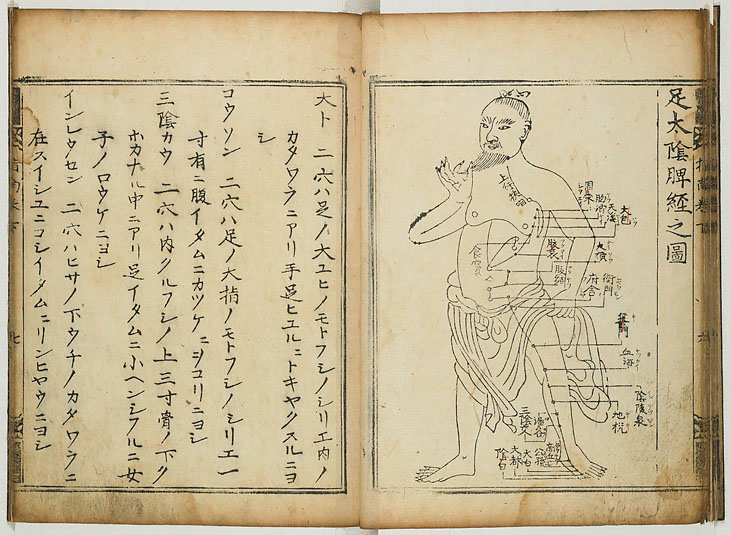 足太陰脾經之圖
大包
食竇
府舎
衝門
血海
陰陵泉
三陰交
大都
大白
大ト 二穴ハ足ノ大ユヒノモトフシノシリエ内ノ
カタワラニアリ手足ヒエルニトキヤクスルニヨ
シ
コウソン 二穴ハ足ノ大指ノモトフシノシリエ一
寸有ニ腹イタムニカツケニヲコリニヨシ
三陰カウ 二穴ハ内クルフシノ上三寸骨ノ下ク
ホカナル中ニアリ足イタムニ小ヘンシフルニ女
子ノロウケニヨシ
インレウセン 二穴ハヒサノ下ウチノカタワラニ
在スイシユニコシイタムニリンヒヤウニヨシ